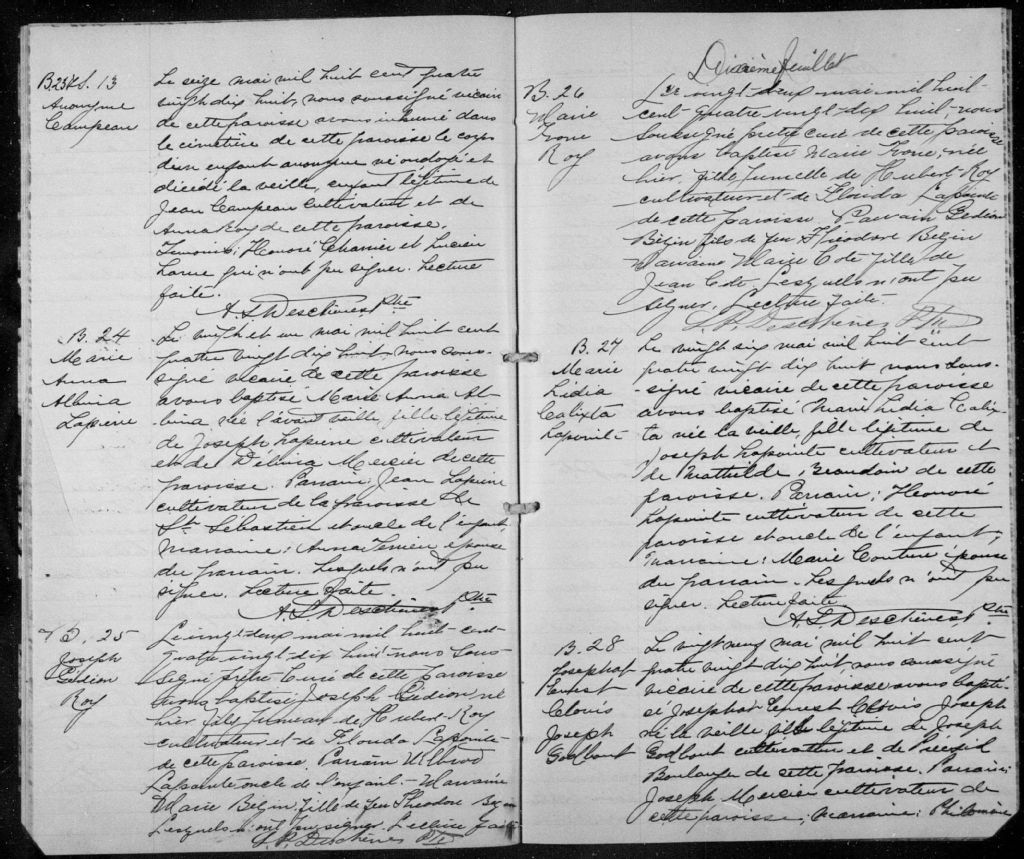 B 23 & S. 13
Anonyme
Campeau
Le seize mai mil huit cent quatre
vingt dix huit, nous soussigné vicaire
de cette paroisse avons inhumé dans
le cimetière de cette paroisse le corps
d'un enfant anonyme né ondoyé et
décédé la veille, enfant légitime de
Jean Campeau cultivateur et de
Anna Roy de cette paroisse.
Témoins: Honoré et Lucien
qui n'ont pu signer. Lecture
faite.
A. L. Deschênes Ptre
B. 24
Marie
Anna
Albina
Lapierre
Le vingt et un mai mil huit cent
quatre vingt dix huit, nous sous-
signé vicaire de cette paroisse
avons baptisé Marie Anna Al-
bina née l'avant veille, fille légitime
de Joseph Lapierre cultivateur
et de Délvina Mercier de cette
paroisse. Parrain: Jean Lapierre
cultivateur de la paroisse de
St. Sébastien et oncle de l'enfant
marraine: Anna épouse
du parrain. Lesquels n'ont pu
signer. Lecture faite.
A. L. Deschênes Ptre
B. 25
Joseph
Gédion
Roy
Le vingt-deux mai mil huit-cent
quatre vingt-dix huit-nous sous-
signé prêtre Curé de cette paroisse
avons baptisé Joseph Gédion, né
hier fils jumeau de Hubert-Roy
cultivateur et de Florida Lapointe
de cette paroisse. Parrain Wilbrod
Lapointe oncle de l'enfant - Marraine
Marie Bégin, fille de feu Théodore Bégin
Lesquels n'ont pu signer Lecture faite
J. P. Deschênes Ptre
Dixième feuillet
B. 26
Marie
Irone
Roy
Le vingt-deux mai mil huit
cent quatre vingt dix huit, nous
soussigné prêtre curé de cette paroisse
avons baptisé Marie Irone, née
hier, fille jumelle de Hubert-Roy
cultivateur et de Florida Lapointe
de cette paroisse. Parrain Gédion
Bégin fils de feu Théodore Bégin
Marraine Marie Coté fille de
Jean Coté. Lesquels n'ont pu
signer. Lecture faite-
J. P. Deschênes Ptre
B. 27
Marie
Lidia
Calixta
Lapointe
Le vingt six mai mil huit cent
quatre vingt dix huit nous sous-
signé vicaire de cette paroisse
avons baptisé Marie Lidia Calix-
ta née la veille, fille légitime de
Joseph Lapointe cultivateur et
de Mathilde Beaudoin de cette
paroisse. Parrain: Honoré
Lapointe cultivateur de cette
paroisse et oncle de l'enfant,
marraine: Marie Couture épouse
du parrain. Lesquels n'ont pu
signer. Lecture faite
A. L. Deschênes Ptre
B. 28
Josephat
Ernest
Clovis
Joseph
Godbout
Le vingt neuf mai mil huit cent
quatre vingt dix huit, nous soussigné
vicaire de cette paroisse avons bapti-
sé Josephat Ernest Clovis Joseph
né la veille fils légitime de Joseph
Godbout cultivateur et de
Boulanger de cette paroisse. Parrain:
Joseph Mercier cultivateur de
cette paroisse, marraine: Philomène